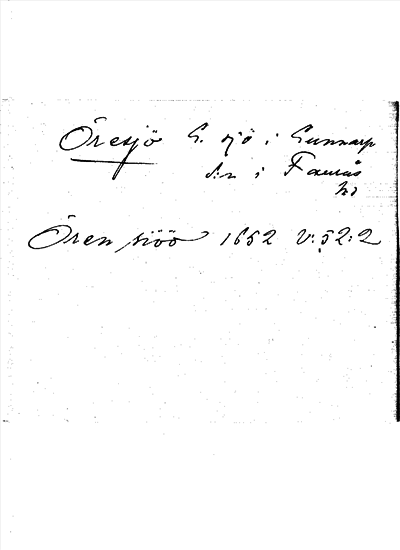 Öresjö G. sjö i Gunnarp
s:n i Faurås
hd
Ören siöö 1652 V:52:2